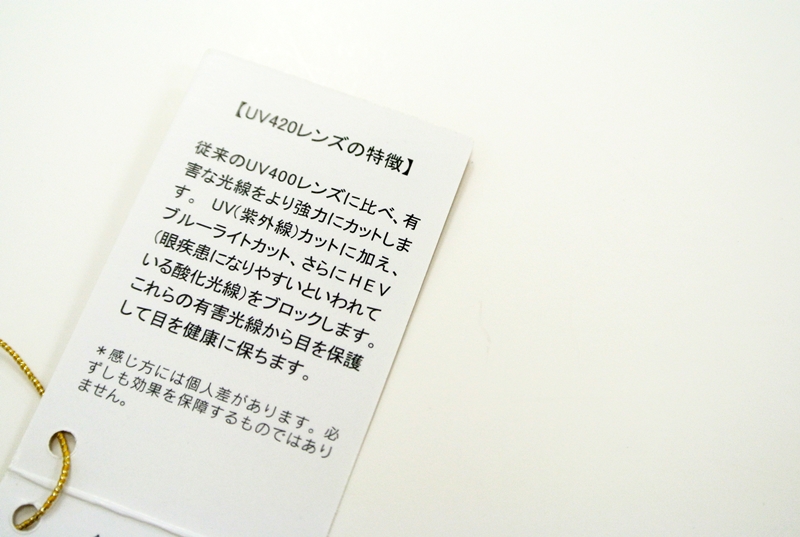 【UV420レンズの特徴】
従来のUV400レンズに比べ、有
害な光線をより強力にカットしま
す。 UV(紫外線)カットに加え、
ブルーライトカット、さらにHEV
(眼疾患になりやすいといわれて
いる酸化光線)をブロックします。
これらの有害光線から目を保護
して目を健康に保ちます。
*感じ方には個人差があります。必
ずしも効果を保障するものではあり
ません。